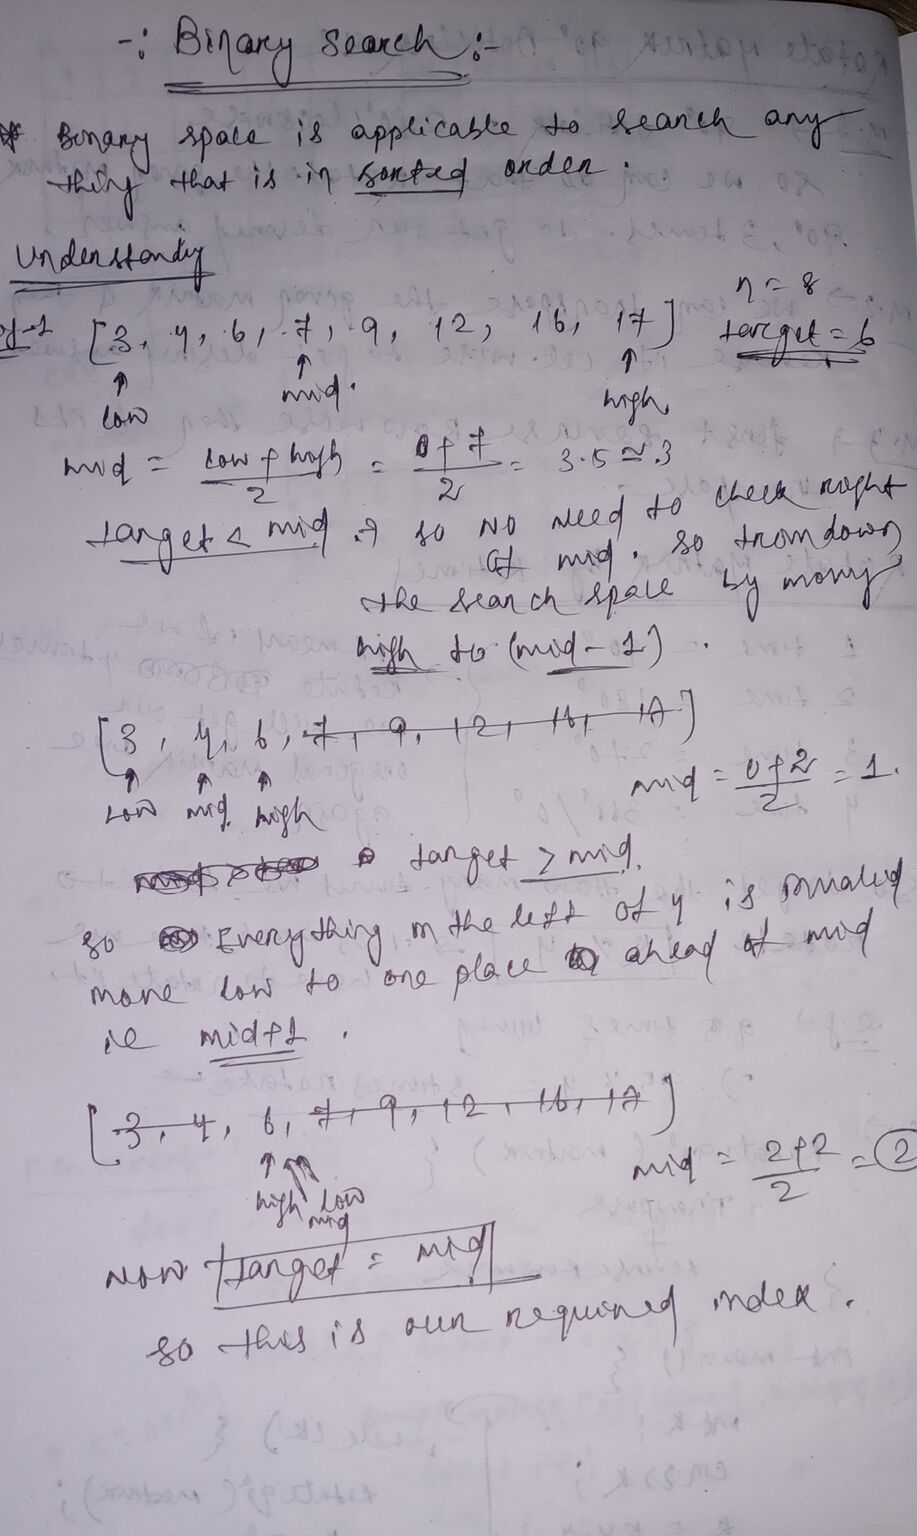 -: Binary search :-
* Binary space is applicable to search any
thing that is in sorted order.
Understandy
n = 8
eg-1 [3, 4, 6, 7, 9, 12, 16, 17] target = 6
low mid. high
mid = low + high / 2 = 0+7 / 2 = 3.5 ≃ 3
target < mid → so NO need to check right
of mid. so trim down
the search space by moving
high to (mid-1).
[3, 4, 6, 7, 9, 12, 16, 17]
low mid high
mid = 0+2 / 2 = 1.
target > mid.
so Everything in the left of 4 is
move low to one place ahead of mid
ie mid+1.
[3, 4, 6, 7, 9, 12, 16, 17]
high low
mid
mid = 2+2 / 2 = 2
Now target = mid
so this is our required index.